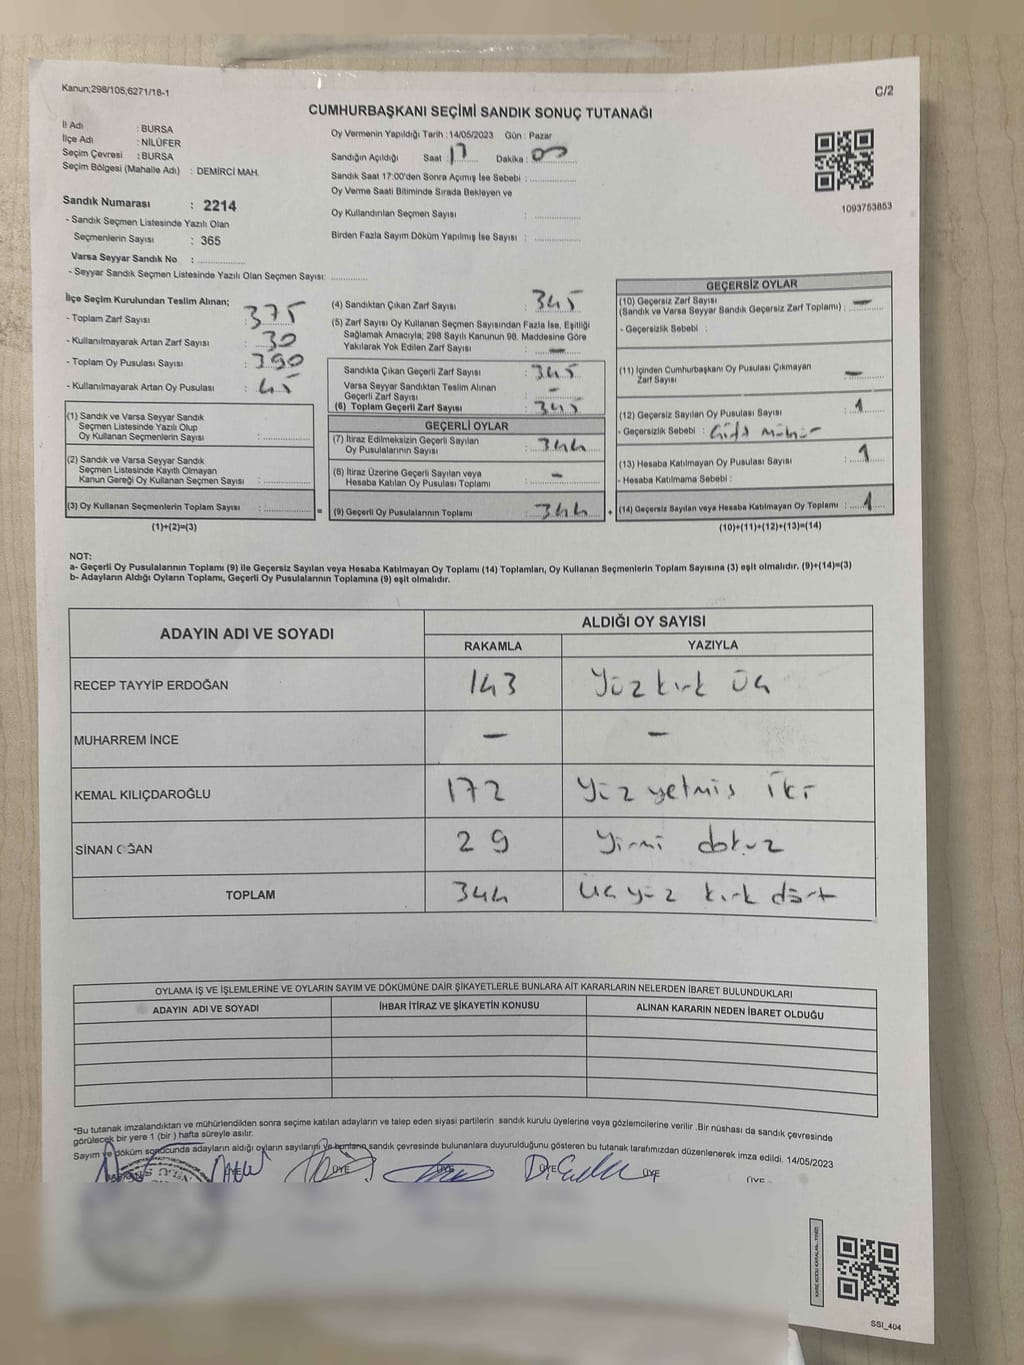 Kanun;298/105;6271/18-1
C/2
CUMHURBAŞKANI SEÇİMİ SANDIK SONUÇ TUTANAĞI
İl Adı : BURSA
İlçe Adı : NİLÜFER
Seçim Çevresi : BURSA
Seçim Bölgesi (Mahalle Adı) : DEMİRCİ MAH.
Sandık Numarası : 2214
- Sandık Seçmen Listesinde Yazılı Olan
Seçmenlerin Sayısı : 365
Varsa Seyyar Sandık No : ..............
- Seyyar Sandık Seçmen Listesinde Yazılı Olan Seçmen Sayısı: ............
Oy Vermenin Yapıldığı Tarih : 14/05/2023 Gün : Pazar
Sandığın Açıldığı Saat : 17 Dakika : 00
Sandık Saat 17:00'den Sonra Açımış İse Sebebi : ..............
Oy Verme Saati Bitiminde Sırada Bekleyen ve
Oy Kullandırılan Seçmen Sayısı : ..............
Birden Fazla Sayım Döküm Yapılmış İse Sayısı : ..............
1093753853
İlçe Seçim Kurulundan Teslim Alınan;
- Toplam Zarf Sayısı : 375
- Kullanılmayarak Artan Zarf Sayısı : 30
- Toplam Oy Pusulası Sayısı : 390
- Kullanılmayarak Artan Oy Pusulası : 45
(1) Sandık ve Varsa Seyyar Sandık
Seçmen Listesinde Yazılı Olup
Oy Kullanan Seçmenlerin Sayısı : ..............
(2) Sandık ve Varsa Seyyar Sandık
Seçmen Listesinde Kayıtlı Olmayan
Kanun Gereği Oy Kullanan Seçmen Sayısı : ..............
(3) Oy Kullanan Seçmenlerin Toplam Sayısı : .............. =
(1)+(2)=(3)
(4) Sandıktan Çıkan Zarf Sayısı : 345
(5) Zarf Sayısı Oy Kullanan Seçmen Sayısından Fazla İse, Eşitliği
Sağlamak Amacıyla; 298 Sayılı Kanunun 98. Maddesine Göre
Yakılarak Yok Edilen Zarf Sayısı : —
Sandıkta Çıkan Geçerli Zarf Sayısı : 345
Varsa Seyyar Sandıktan Teslim Alınan
Geçerli Zarf Sayısı : —
(6) Toplam Geçerli Zarf Sayısı : 345
GEÇERLİ OYLAR
(7) İtiraz Edilmeksizin Geçerli Sayılan
Oy Pusulalarının Sayısı : 344
(8) İtiraz Üzerine Geçerli Sayılan veya
Hesaba Katılan Oy Pusulası Toplamı : —
(9) Geçerli Oy Pusulalarının Toplamı : 344 +
GEÇERSİZ OYLAR
(10) Geçersiz Zarf Sayısı
(Sandık ve Varsa Seyyar Sandık Geçersiz Zarf Toplamı) : —
- Geçersizlik Sebebi :
(11) İçinden Cumhurbaşkanı Oy Pusulası Çıkmayan
Zarf Sayısı : —
(12) Geçersiz Sayılan Oy Pusulası Sayısı : 1
- Geçersizlik Sebebi : Çift mühür
(13) Hesaba Katılmayan Oy Pusulası Sayısı : 1
- Hesaba Katılmama Sebebi :
(14) Geçersiz Sayılan veya Hesaba Katılmayan Oy Toplamı : 1
(10)+(11)+(12)+(13)=(14)
NOT:
a- Geçerli Oy Pusulalarının Toplamı (9) ile Geçersiz Sayılan veya Hesaba Katılmayan Oy Toplamı (14) Toplamları, Oy Kullanan Seçmenlerin Toplam Sayısına (3) eşit olmalıdır. (9)+(14)=(3)
b- Adayların Aldığı Oyların Toplamı, Geçerli Oy Pusulalarının Toplamına (9) eşit olmalıdır.
ADAYIN ADI VE SOYADI
ALDIĞI OY SAYISI
RAKAMLA YAZIYLA
RECEP TAYYİP ERDOĞAN 143 Yüz kırk üç
MUHARREM İNCE — —
KEMAL KILIÇDAROĞLU 172 Yüz yetmiş iki
SİNAN OĞAN 29 Yirmi dokuz
TOPLAM 344 Üç yüz kırk dört
OYLAMA İŞ VE İŞLEMLERİNE VE OYLARIN SAYIM VE DÖKÜMÜNE DAİR ŞİKAYETLERLE BUNLARA AİT KARARLARIN NELERDEN İBARET BULUNDUKLARI
ADAYIN ADI VE SOYADI İHBAR İTİRAZ VE ŞİKAYETİN KONUSU ALINAN KARARIN NEDEN İBARET OLDUĞU
*Bu tutanak imzalandıktan ve mühürlendikten sonra seçime katılan adayların ve talep eden siyasi partilerin sandık kurulu üyelerine veya gözlemcilerine verilir .Bir nüshası da sandık çevresinde
görülecek bir yere 1 (bir ) hafta süreyle asılır.
Sayım ve döküm sonucunda adayların aldığı oyların sayılarını ve bunların sandık çevresinde bulunanlara duyurulduğunu gösteren bu tutanak tarafımızdan düzenlenerek imza edildi. 14/05/2023
ÜYE ÜYE ÜYE ÜYE ÜYE ÜYE
SSI_404